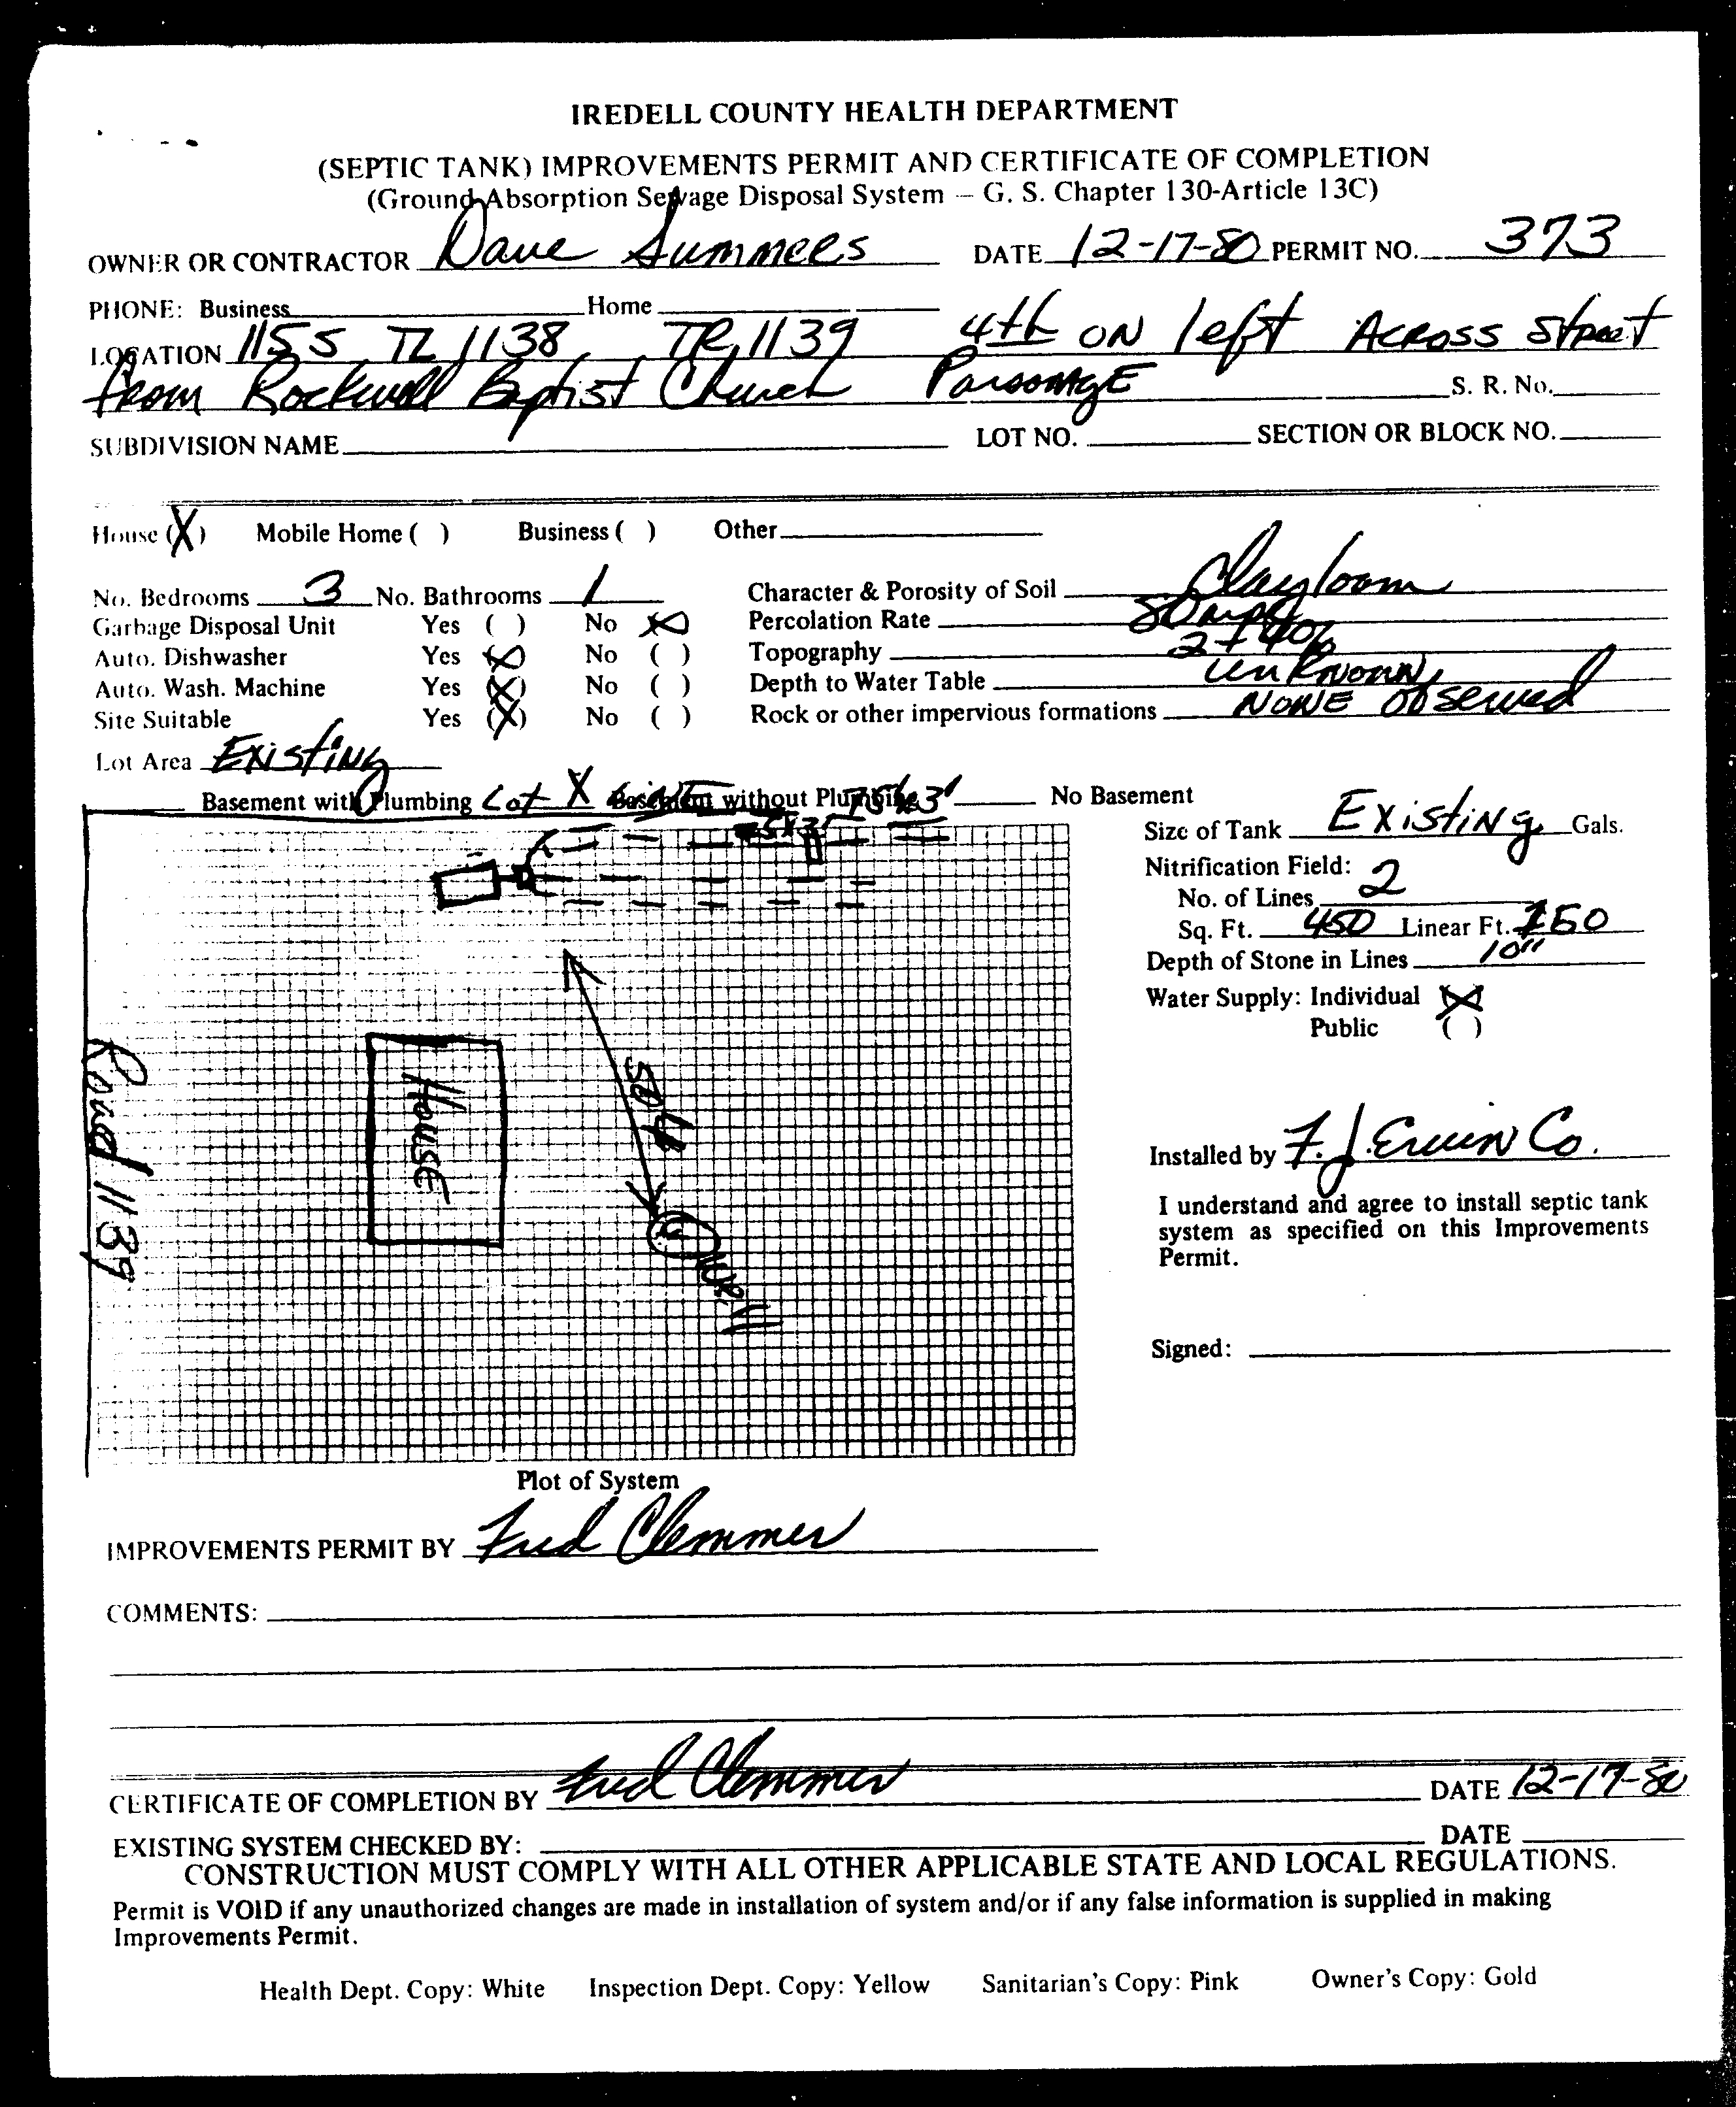 IREDELL COUNTY HEALTH DEPARTMENT
(SEPTIC TANK) IMPROVEMENTS PERMIT AND CERTIFICATE OF COMPLETION
(Ground Absorption Sewage Disposal System — G. S. Chapter 130-Article 13C)
OWNER OR CONTRACTOR Dave Summers DATE 12-17-80 PERMIT NO. 373
PHONE: Business Home
LOCATION 1155 TL 1138 TR 1139 4th ON left Across Street
from Rockwell Baptist Church Parsonage S. R. No.
SUBDIVISION NAME LOT NO. SECTION OR BLOCK NO.
House (X) Mobile Home ( ) Business ( ) Other
No. Bedrooms 3 No. Bathrooms 1 Character & Porosity of Soil Clay loam
Garbage Disposal Unit Yes ( ) No (X) Percolation Rate
Auto. Dishwasher Yes (X) No ( ) Topography
Auto. Wash. Machine Yes (X) No ( ) Depth to Water Table unknown
Site Suitable Yes (X) No ( ) Rock or other impervious formations NONE Observed
Lot Area Existing
Basement with Plumbing Lot X Basement without Plumbing No Basement
Size of Tank Existing Gals.
Nitrification Field:
No. of Lines 2
Sq. Ft. 450 Linear Ft. 150
Depth of Stone in Lines 10"
Water Supply: Individual (X)
Public ( )
Road 1139
House
50 ft
Well
Installed by F. J. Erwin Co.
I understand and agree to install septic tank
system as specified on this Improvements
Permit.
Signed:
Plot of System
IMPROVEMENTS PERMIT BY Fred Clemmer
COMMENTS:
CERTIFICATE OF COMPLETION BY Fred Clemmer DATE 12-17-80
EXISTING SYSTEM CHECKED BY: DATE
CONSTRUCTION MUST COMPLY WITH ALL OTHER APPLICABLE STATE AND LOCAL REGULATIONS.
Permit is VOID if any unauthorized changes are made in installation of system and/or if any false information is supplied in making
Improvements Permit.
Health Dept. Copy: White Inspection Dept. Copy: Yellow Sanitarian's Copy: Pink Owner's Copy: Gold